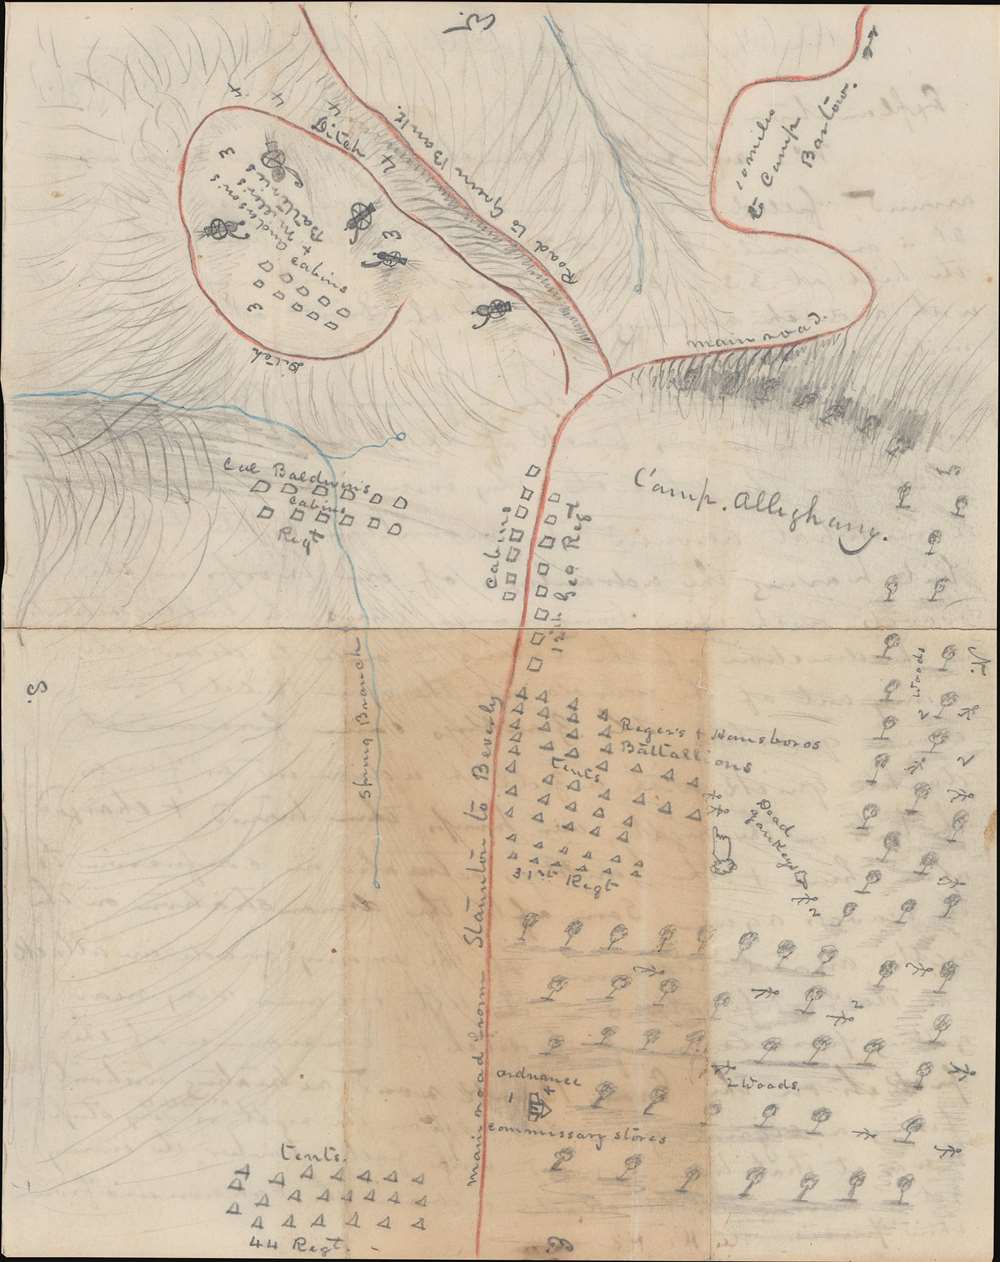 Road to Green Bank.
Ditch
4
4
4
4
3
3
3
Anderson's
+ Miller's
Batteries
Cabins
Ditch
10 miles
to Camp
Bartow.
main road
Camp. Alleghany.
Col Baldwin's
Cabins
Regt
Cabins
12th Geo Regt
S.
N.
Spring Branch
main road from Staunton to Beverly
Reger's + Hansboros
Battallions
Tents
31st Regt
2 Woods
2
Dead
Yankeys
2
2
2 Woods.
ordnance
1
+
commissary stores
tents.
44 Regt.